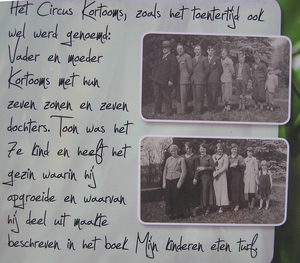 Het Circus Kortooms, zoals het toentertijd ook
wel werd genoemd:
Vader en moeder
Kortooms met hun
zeven zonen en zeven
dochters. Toon was het
7e kind en heeft het
gezin waarin hij
opgroeide en waarvan
hij deel uit maakte
beschreven in het boek Mijn kinderen eten turf